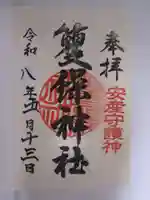 奉拝
安産守護神
神社
令和八年五月十三日